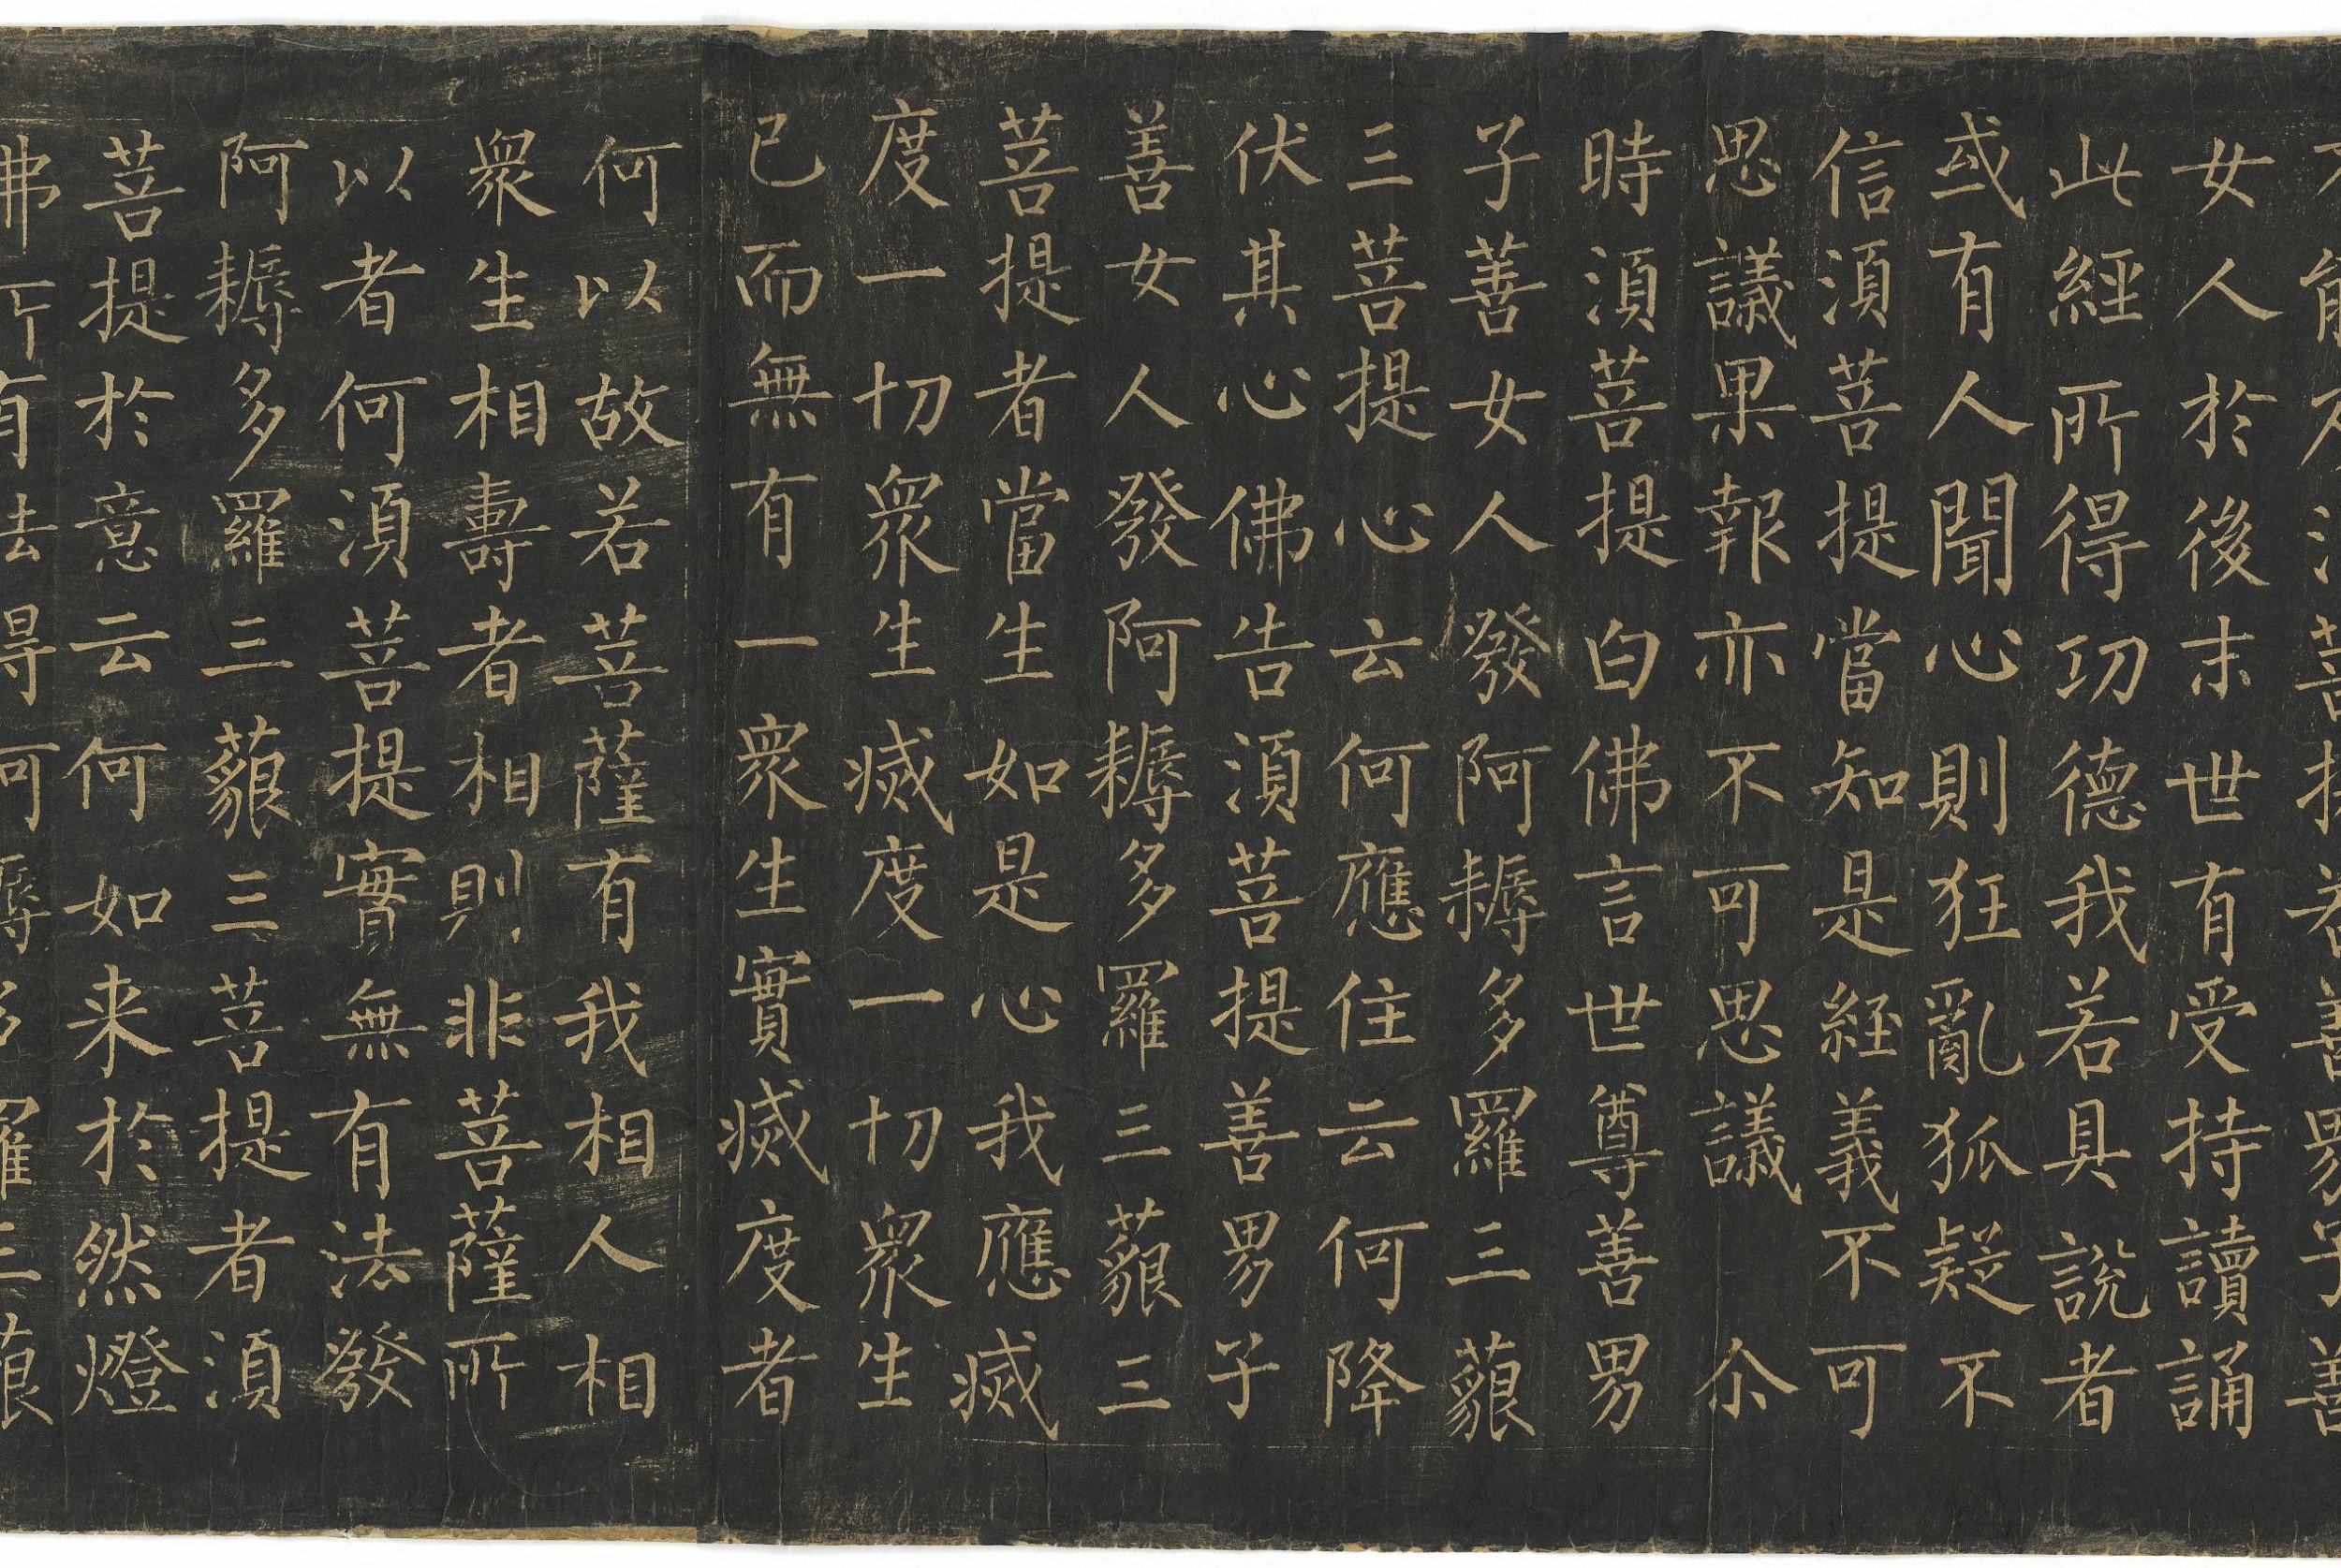 不能及須菩提若善男子善
女人於後末世有受持讀誦
此經所得功德我若具說者
或有人聞心則狂亂狐疑不
信須菩提當知是經義不可
思議果報亦不可思議 尒
時須菩提白佛言世尊善男
子善女人發阿耨多羅三藐
三菩提心云何應住云何降
伏其心佛告須菩提善男子
善女人發阿耨多羅三藐三
菩提者當生如是心我應滅
度一切眾生滅度一切眾生
已而無有一眾生實滅度者
何以故若菩薩有我相人相
眾生相壽者相則非菩薩所
以者何須菩提實無有法發
阿耨多羅三藐三菩提者須
菩提於意云何如来於然燈
佛所有法得阿耨多羅三藐